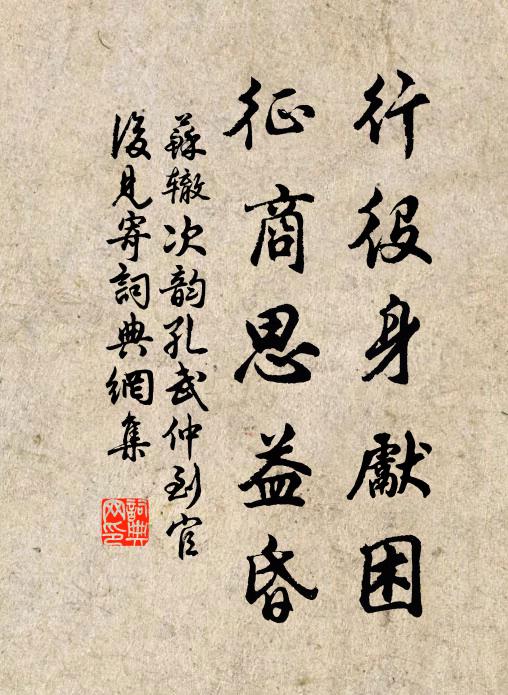 行役身獻困
征商思益昏
蘇辙次韵孔武仲到官
後見寄詞典網集
詞典
网印